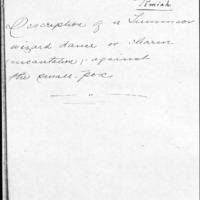 Tsmiah
Description of a Simmicon
wizard dance or charm
incantation, against
the small pox